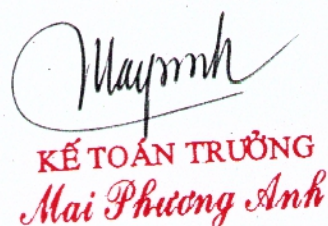 KẾ TOÁN TRƯỞNG
Mai Phương Anh